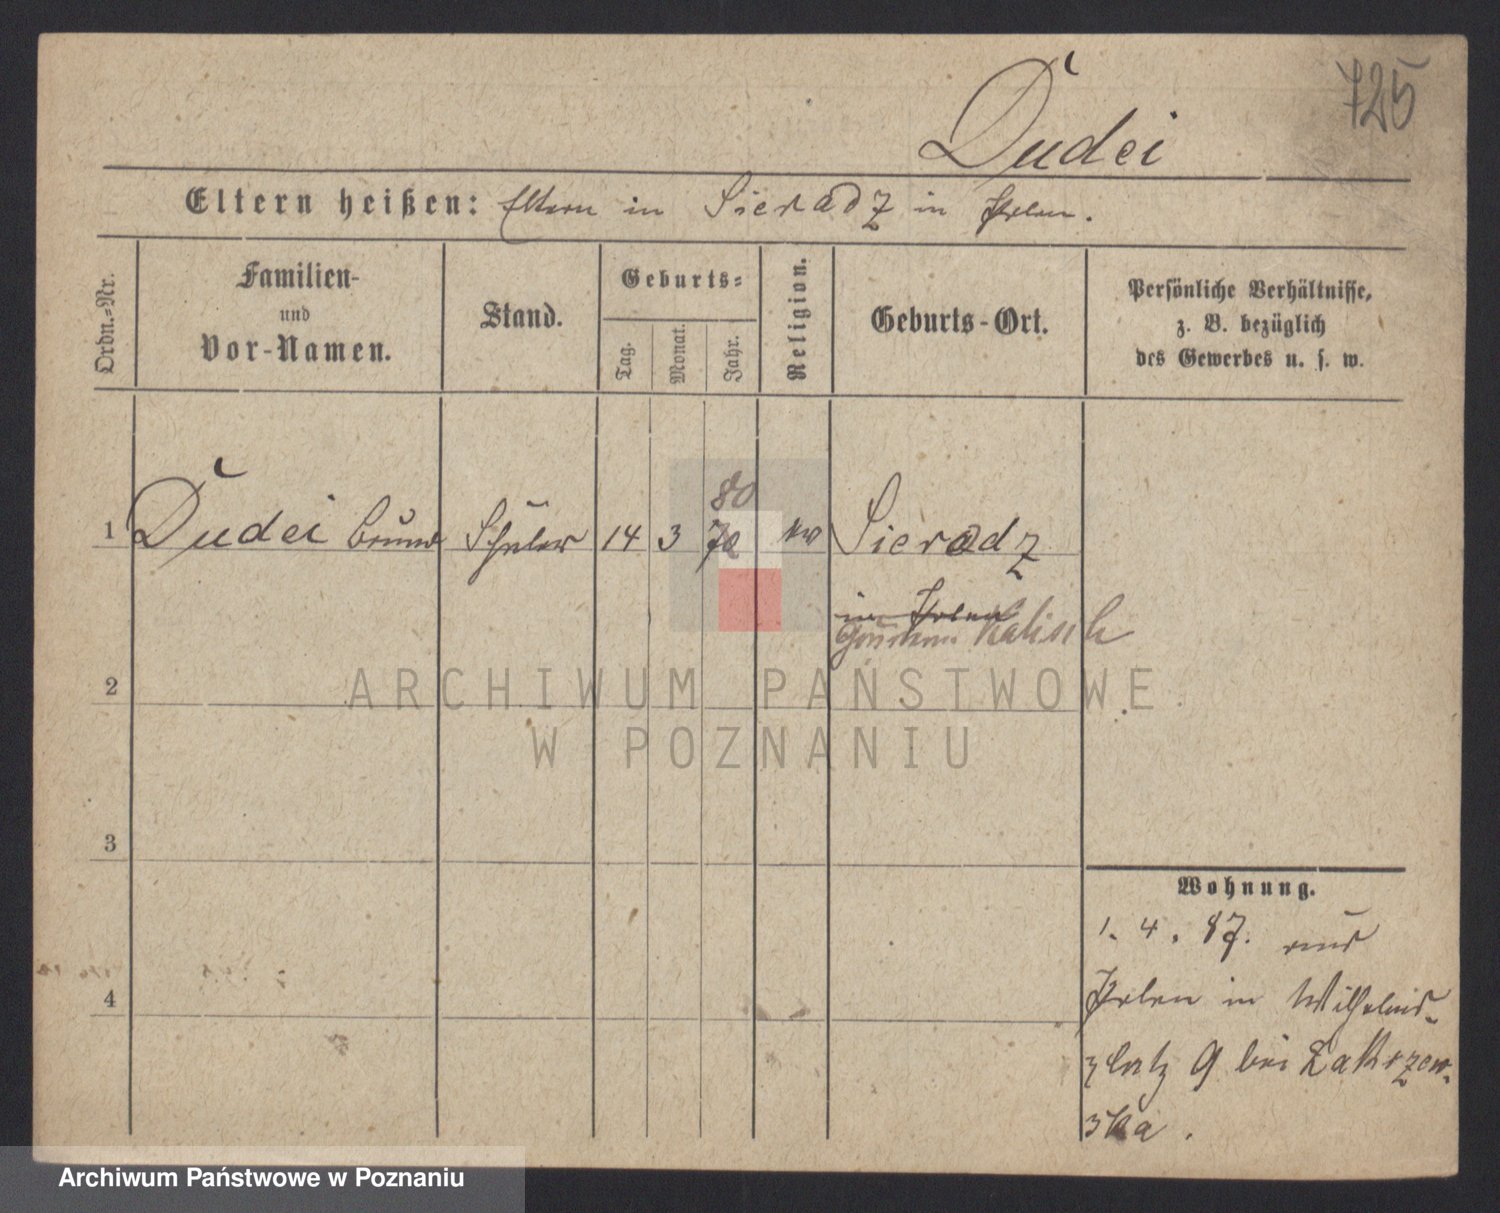 725
Dudei
Eltern heißen: Eltern in Sieradz in Polen.
Ordn.-Nr.
Familien-
und
Vor-Namen.
Stand.
Geburts-
Tag.
Monat.
Jahr.
Religion.
Geburts-Ort.
Persönliche Verhältnisse,
z. B. bezüglich
des Gewerbes u. s. w.
80
1 Dudei Bruno Schüler 14 3 Sieradz
in Polen
Kalisch
2
ARCHIWUM PAŃSTWOWE
W POZNANIU
3
4
Wohnung.
1. 4. 87. aus
Polen in Wilhelms-
platz 9 bei Zakrzew-
ska.
Archiwum Państwowe w Poznaniu